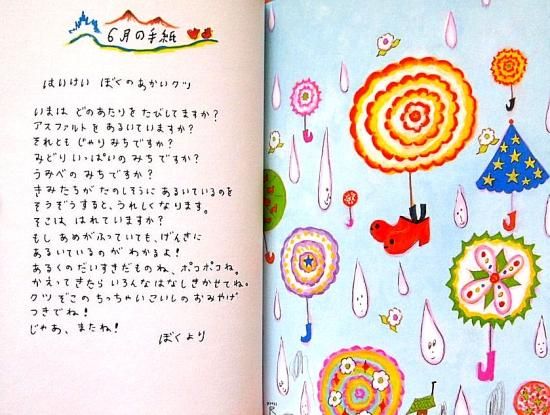 6月の手紙
はいけい ぼくのあかいクツ
いまは どのあたりを たびしてますか？
アスファルトを あるいていますか？
それとも じゃり みちですか？
みどり いっぱいの みちですか？
うみべの みちですか？
きみたちが たのしそうに あるいているのを
そうぞうすると、うれしくなります。
そこは、はれていますか？
もし あめがふっていても、げんきに
あるいているのが わかるよ！
あるくのだいすきだものね、ポコポコね。
かえってきたら いろんなはなしきかせてね。
クツ ぞこの ちっちゃいこいしの おみやげ
つきでね！
じゃあ、またね！
ぼくより